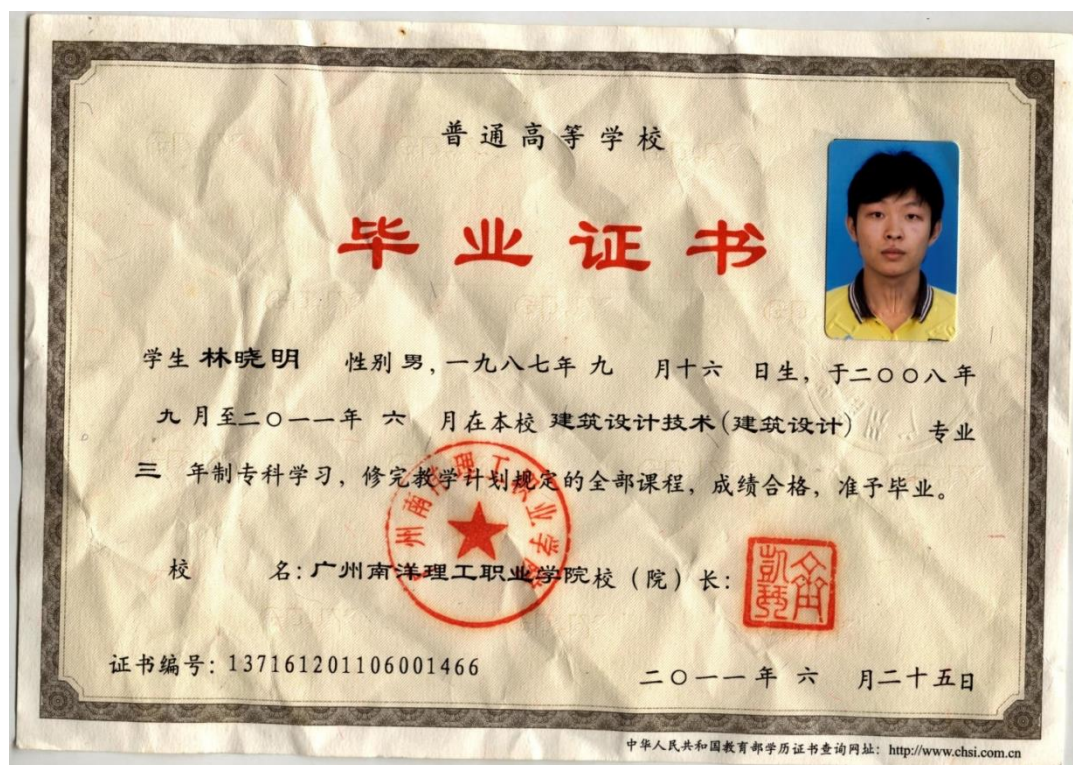 普通高等学校
毕业证书
学生 林晓明 性别 男，一九八七年 九 月十六 日生，于二〇〇八年
九 月至二〇一一年 六 月在本校 建筑设计技术(建筑设计) 专业
三 年制专科学习，修完教学计划规定的全部课程，成绩合格，准予毕业。
广州南洋理工职业学院
校 名：广州南洋理工职业学院校（院）长：
证书编号：137161201106001466
二〇一一年 六 月二十五日
中华人民共和国教育部学历证书查询网址：http://www.chsi.com.cn